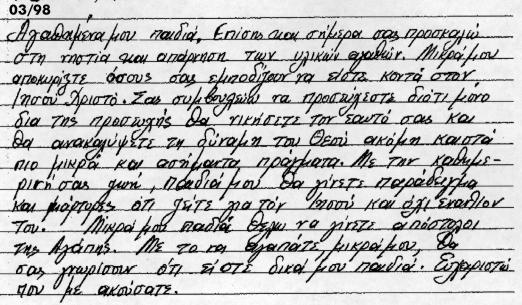 03/98
Αγαπημένα μου παιδιά, Επίσης και σήμερα σας προσκαλώ
στη νηστία και απάρνηση των υλικών αγαθών. Μικρά μου
αποκυρίξτε όσους σας εμποδίζουν να είστε κοντά στον
Ιησού Χριστό. Σας συμβουλεύω να προσεύχεστε διότι μόνο
δια της προσευχής θα νικήσετε τον εαυτό σας και
θα ανακαλύψετε τη δύναμη του Θεού ακόμη και στά
πιο μικρά και ασήμαντα πραγματα. Με την καθημε-
ρινή σας ζωή, παιδιά μου θα γίνετε παράδειγμα
και μάρτυρες ότι ζείτε για τόν Ιησού και όχι εναντίον
του. Μικρά μου παιδιά θελω να γίνετε απόστολοι
της Αγάπης. Με το να αγαπάτε μικρά μου, θα
σας γνωρίσουν ότι είστε δικά μου παιδιά. Ευχαριστώ
που με ακούσατε.